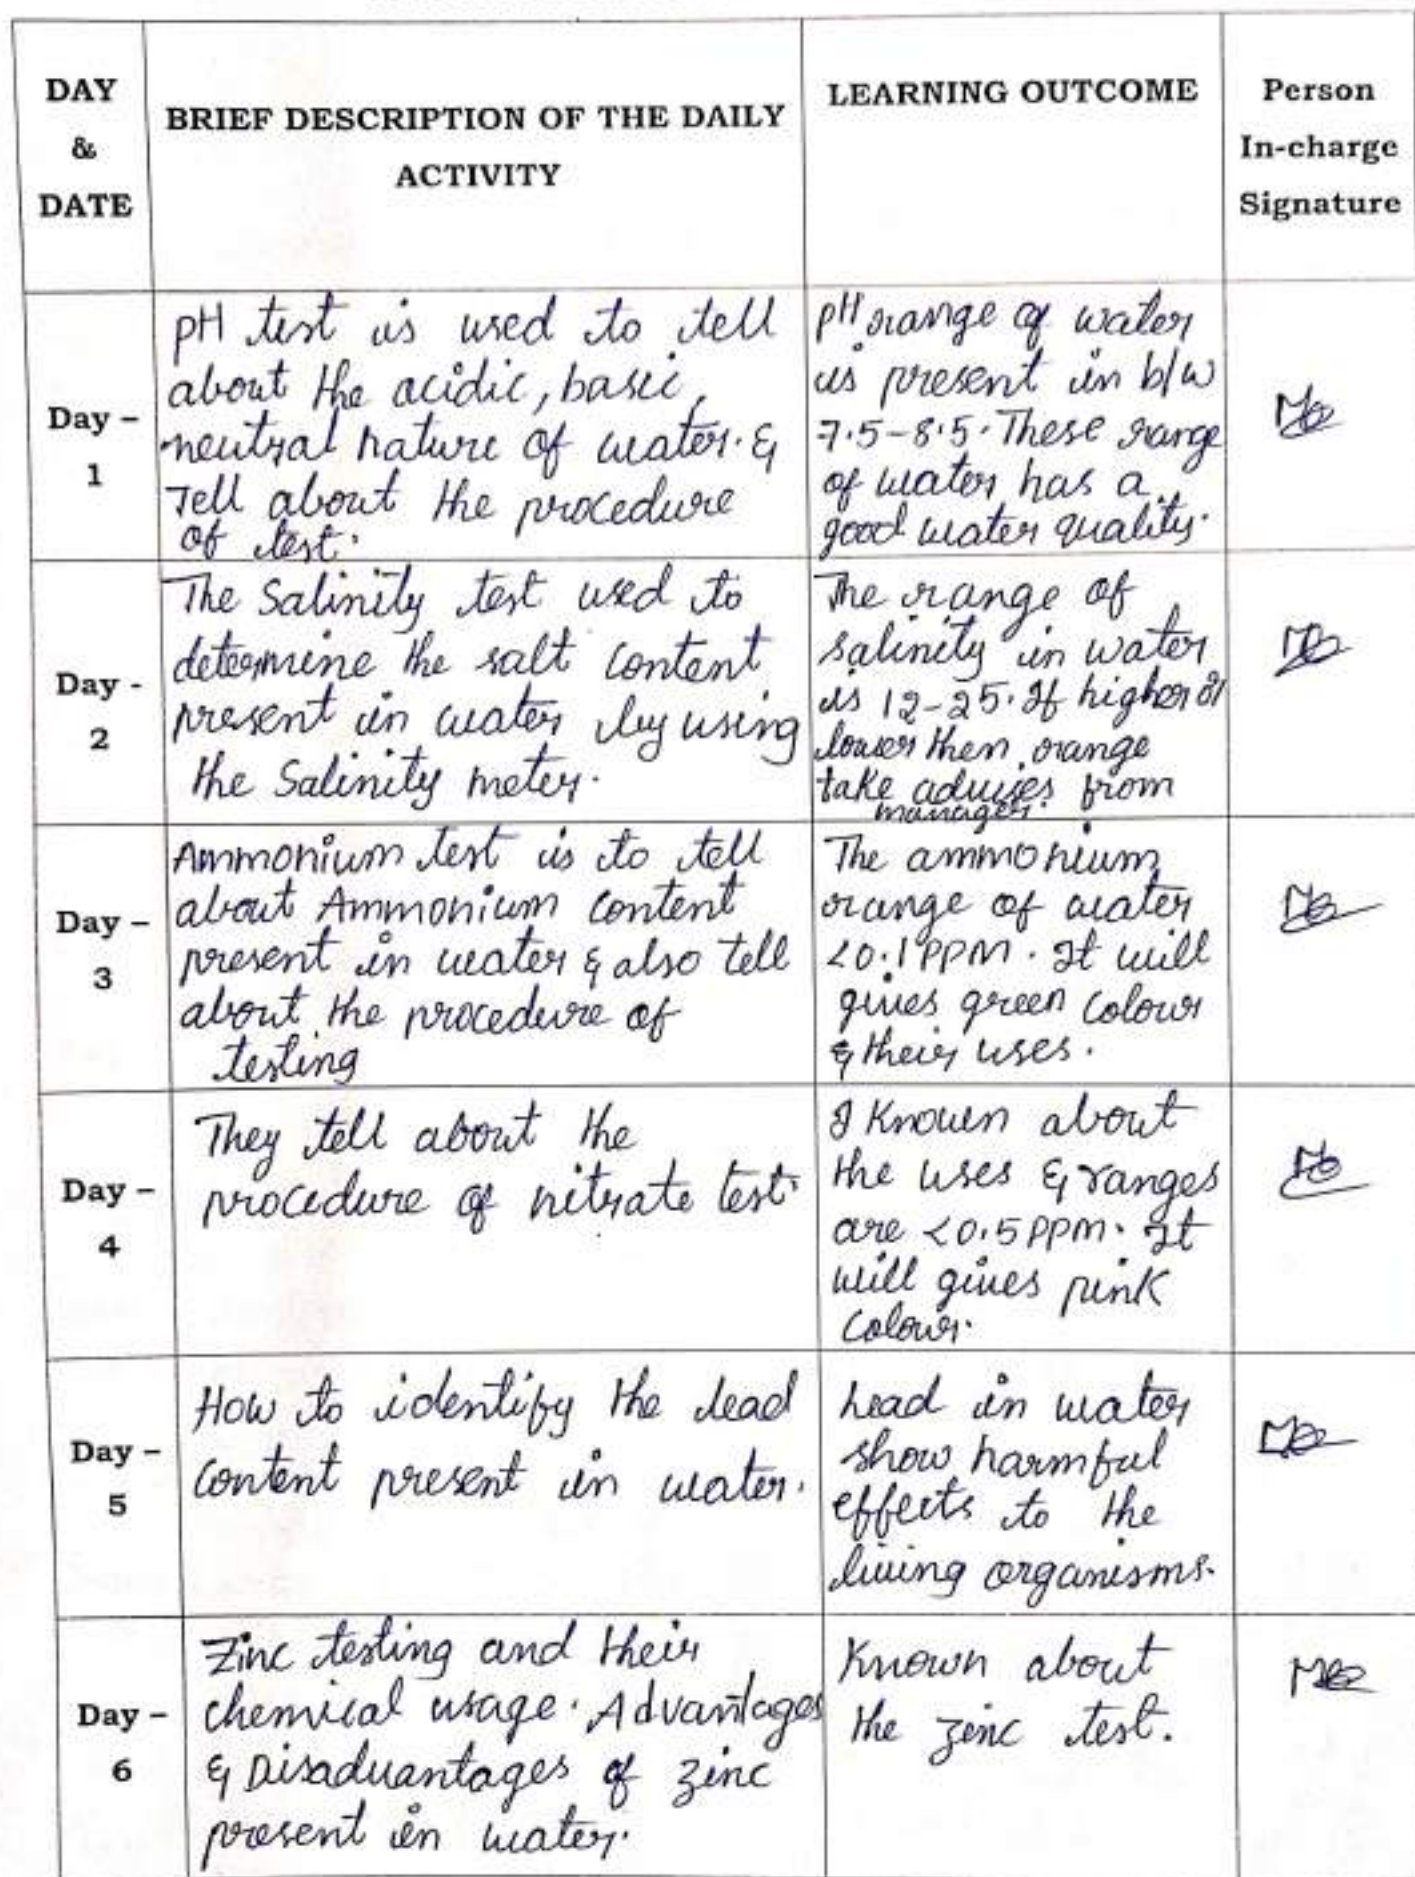 DAY
&
DATE
BRIEF DESCRIPTION OF THE DAILY
ACTIVITY
LEARNING OUTCOME
Person
In-charge
Signature
Day –
1
pH test is used to tell
about the acidic, basic,
neutral nature of water. &
Tell about the procedure
of test.
pH range of water
is present in b/w
7.5-8.5. These range
of water has a
good water quality.
Day -
2
The Salinity test used to
determine the salt content
present in water by using
the Salinity meter.
The range of
salinity in water
is 12-25. If higher or
lower then range
take advices from
manager.
Day –
3
Ammonium test is to tell
about Ammonium content
present in water & also tell
about the procedure of
testing
The ammonium
range of water
<0.1 PPM. It will
gives green colour
& their uses.
Day –
4
They tell about the
procedure of nitrate test.
I Known about
the uses & ranges
are <0.5 PPM. It
will gives pink
Colour.
Day –
5
How to identify the lead
content present in water.
Lead in water
show harmful
effects to the
living organisms.
Day –
6
Zinc testing and their
chemical usage. Advantages
& Disadvantages of zinc
present in water.
Known about
the zinc test.